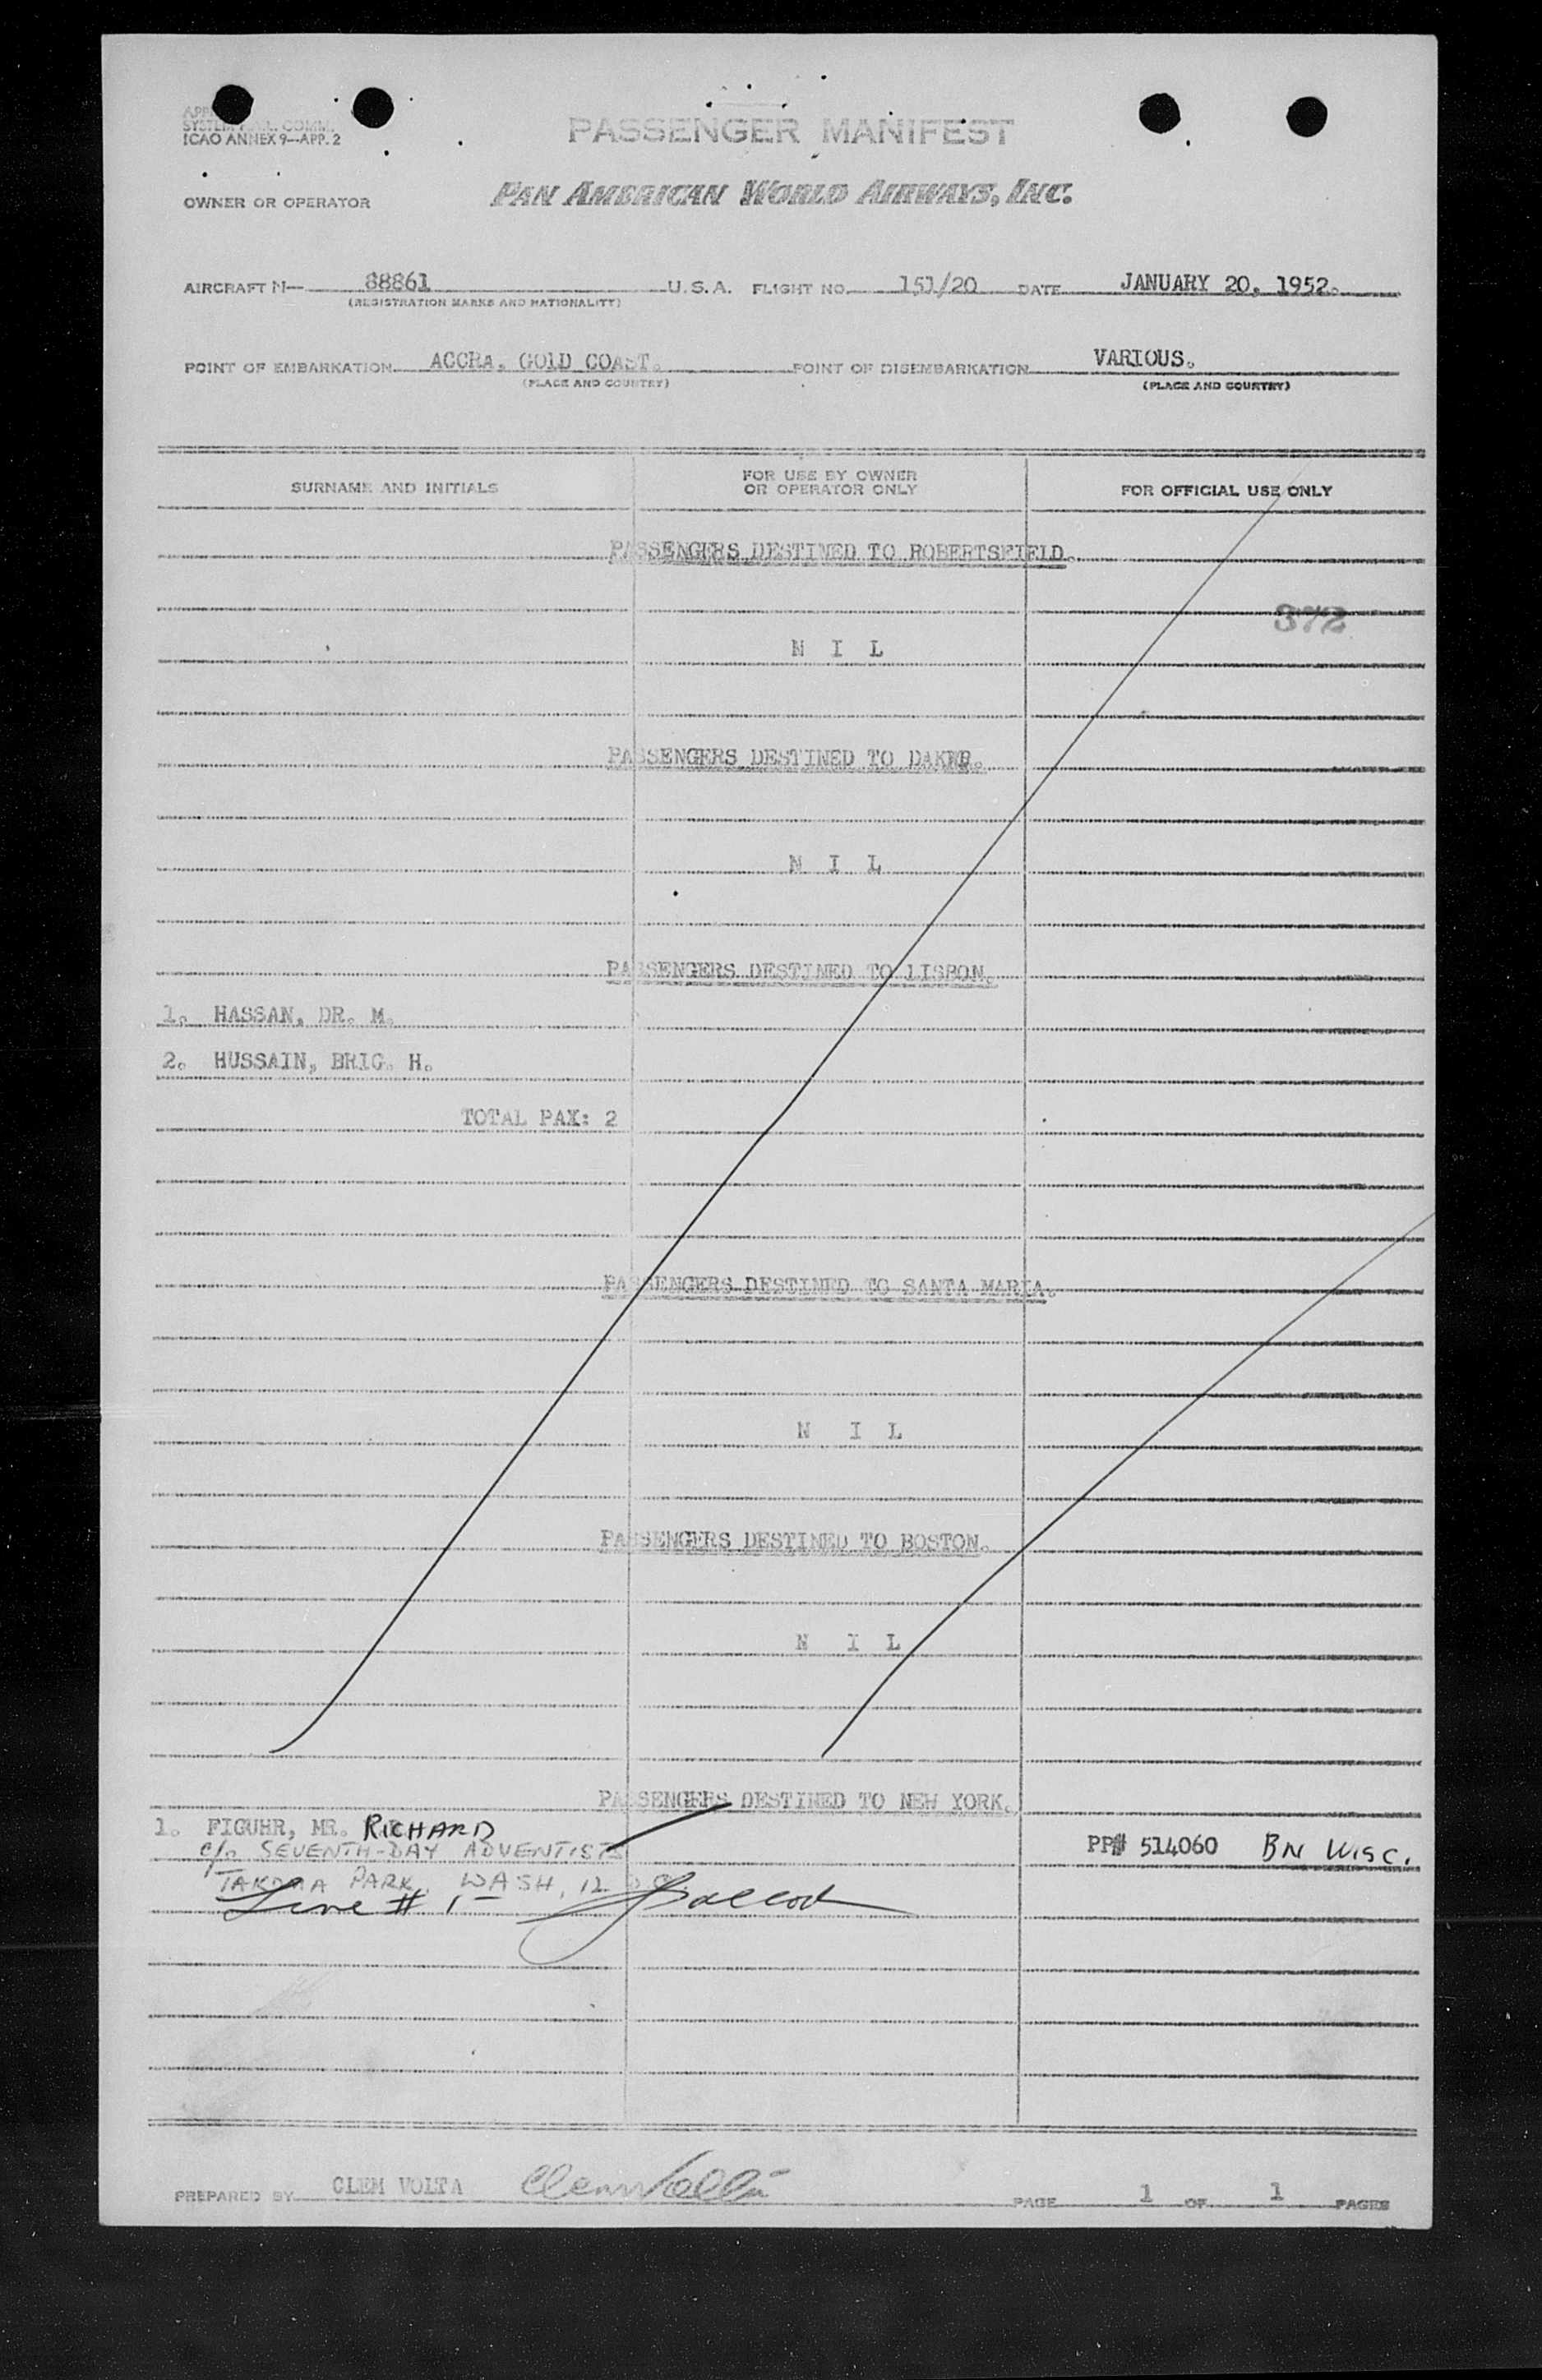 SYSTEM
ICAO ANNEX 9—APP. 2
PASSENGER MANIFEST
OWNER OR OPERATOR PAN AMERICAN WORLD AIRWAYS, INC.
AIRCRAFT N— 88861 U.S.A. FLIGHT NO. 151/20 DATE JANUARY 20, 1952.
(REGISTRATION MARKS AND NATIONALITY)
POINT OF EMBARKATION ACCRA, GOLD COAST. POINT OF DISEMBARKATION VARIOUS.
(PLACE AND COUNTRY) (PLACE AND COUNTRY)
SURNAME AND INITIALS FOR USE BY OWNER OR OPERATOR ONLY FOR OFFICIAL USE ONLY
PASSENGERS DESTINED TO ROBERTSFIELD.
372
N I L
PASSENGERS DESTINED TO DAKAR.
N I L
PASSENGERS DESTINED TO LISBON.
1. HASSAN, DR. M.
2. HUSSAIN, BRIG. H.
TOTAL PAX: 2
PASSENGERS DESTINED TO SANTA MARIA.
N I L
PASSENGERS DESTINED TO BOSTON.
N I L
PASSENGERS DESTINED TO NEW YORK.
1. FIGUHR, MR. RICHARD
c/o SEVENTH-DAY ADVENTISTS PP# 514060 BN WISC.
TAKOMA PARK, WASH, 12 D.C.
Line # 1 —
PREPARED BY CLEM VOLTA PAGE 1 OF 1 PAGES